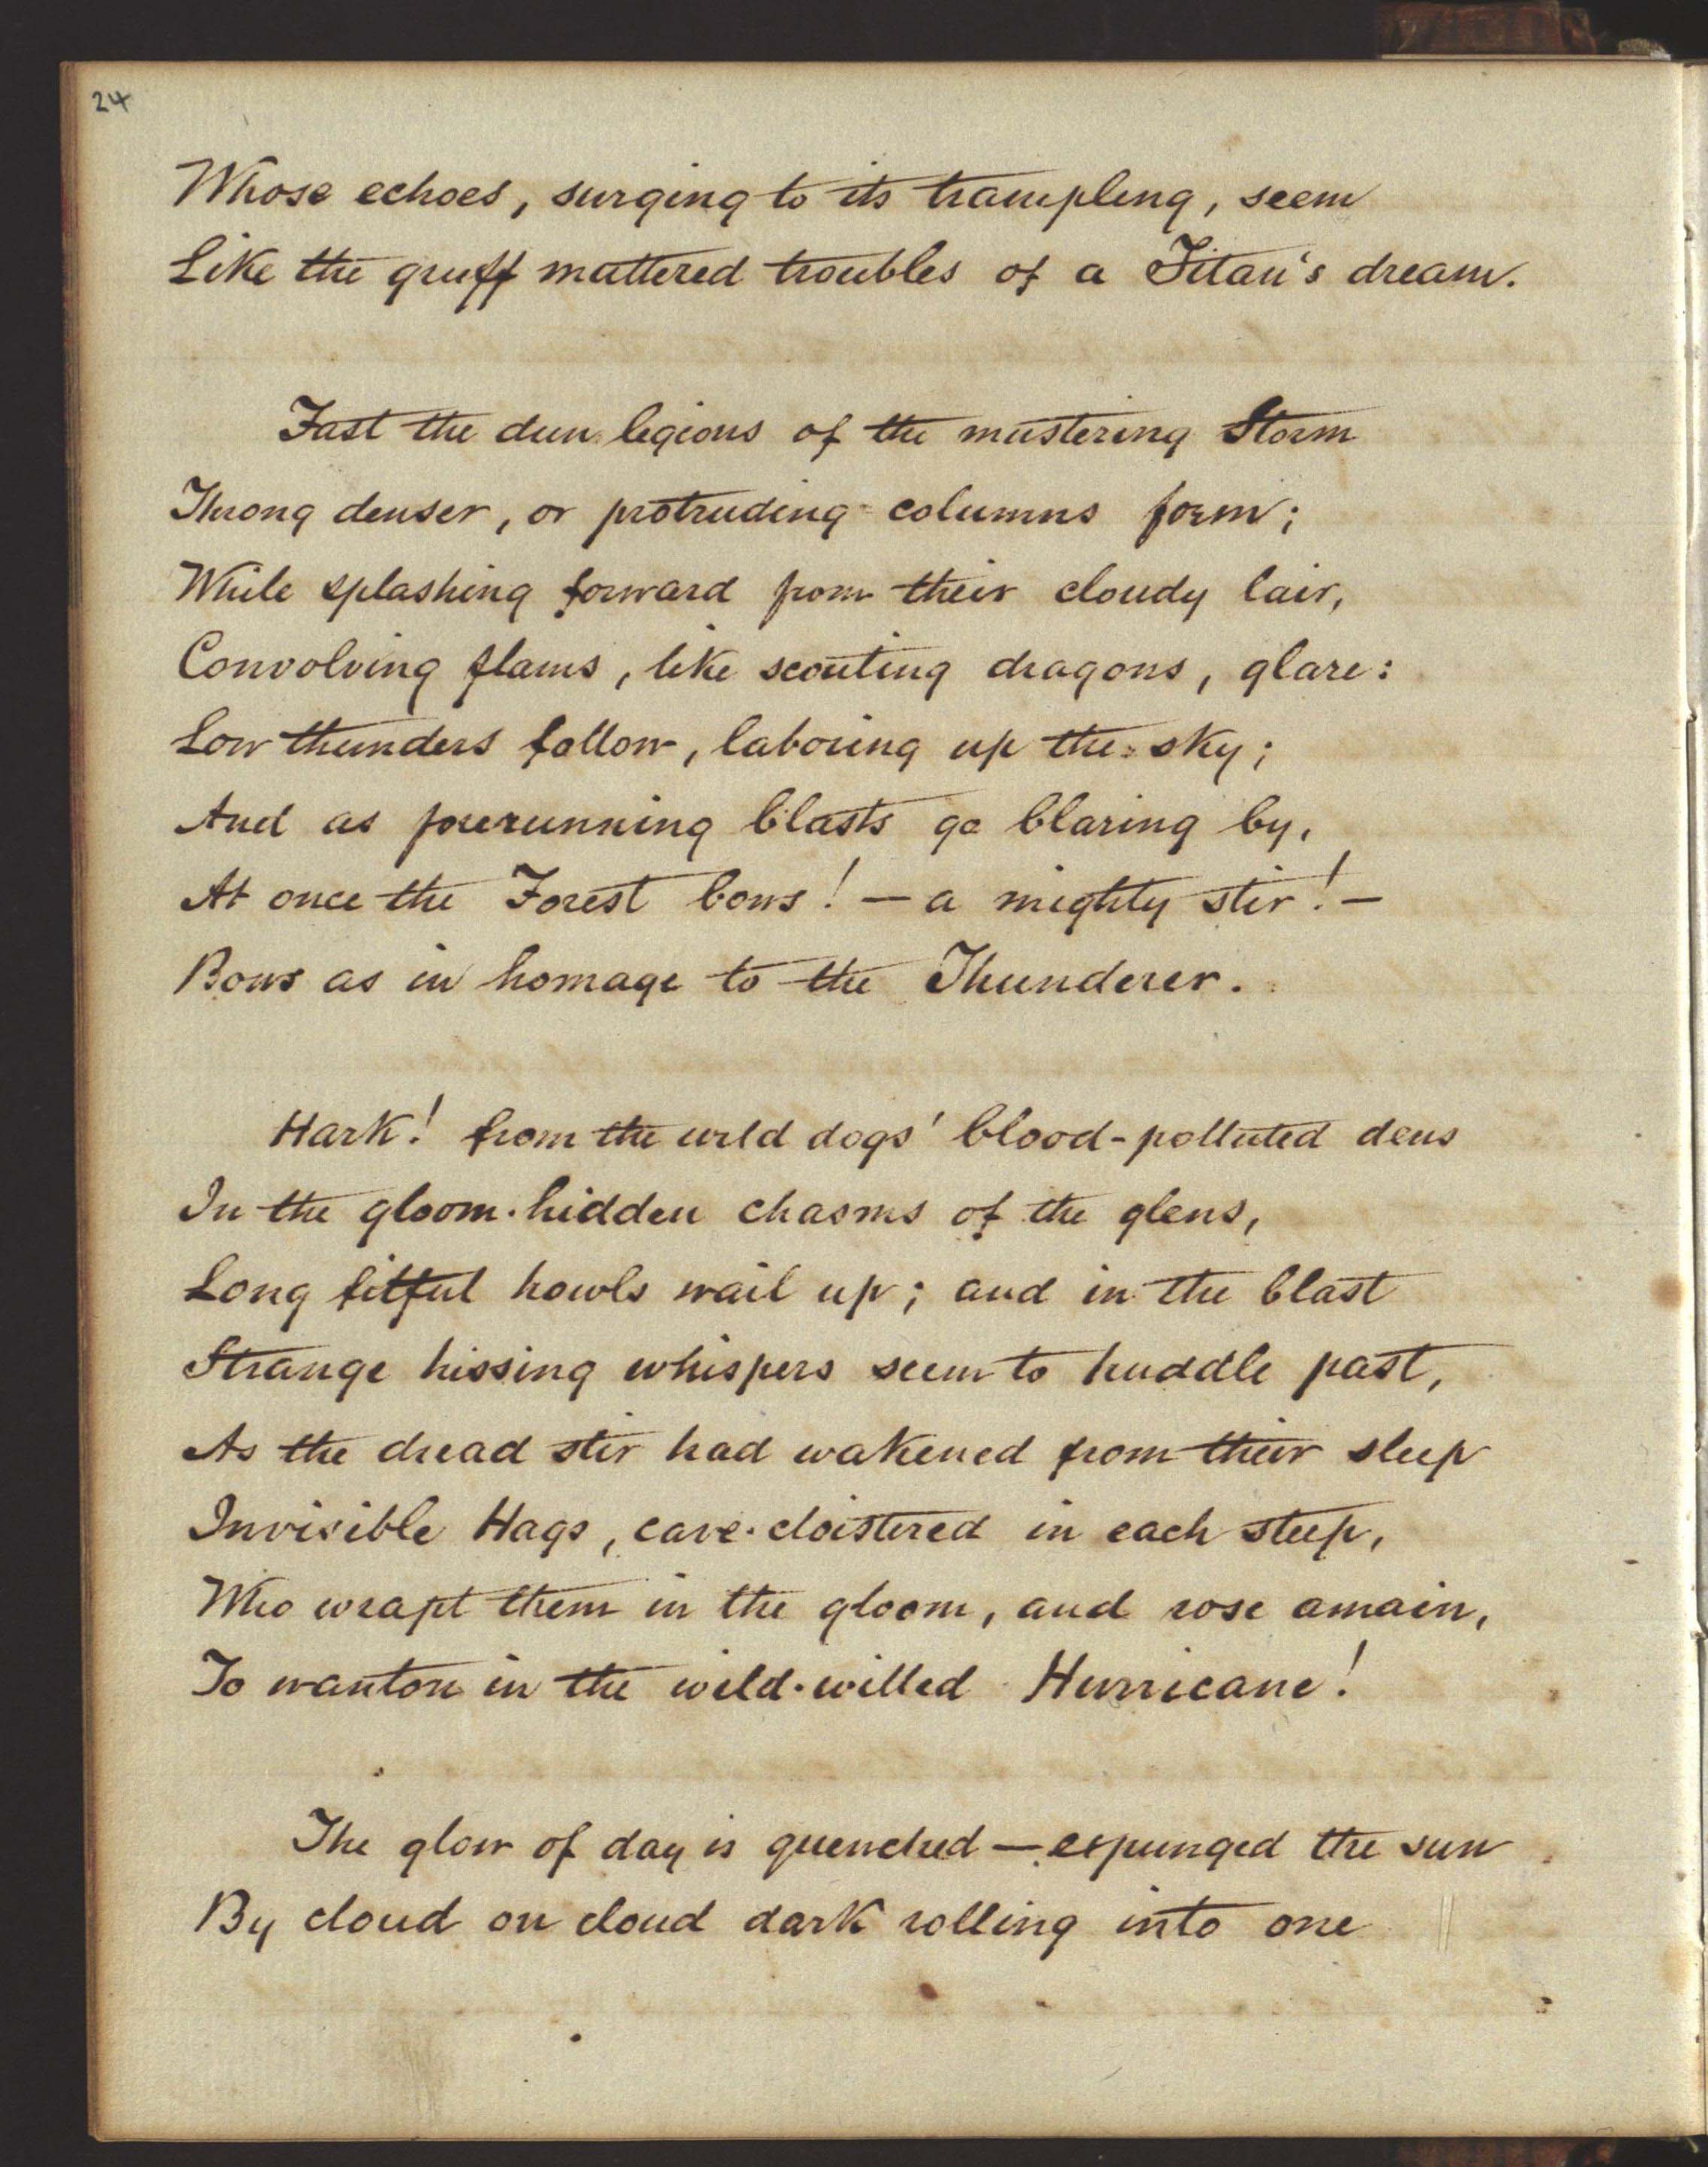 24
Whose echoes, surging to its trampling, seem
Like the gruff muttered troubles of a Titan's dream.
Fast the dun legions of the mustering Storm
Throng denser, or protruding columns form;
While splashing forward from their cloudy lair,
Convolving flams, like scouting dragons, glare:
Low thunders follow, laboring up the sky;
And as forerunning blasts go blaring by,
At once the Forest bows! — a mighty stir! —
Bows as in homage to the Thunderer.
Hark! from the wild dogs' blood-polluted dens
In the gloom-hidden chasms of the glens,
Long fitful howls wail up; and in the blast
Strange hissing whispers seem to huddle past,
As the dread stir had wakened from their sleep
Invisible Hags, cave-cloistered in each steep,
Who wrapt them in the gloom, and rose amain,
To wanton in the wild-willed Hurricane!
The glow of day is quenched — expunged the sun
By cloud on cloud dark rolling into one